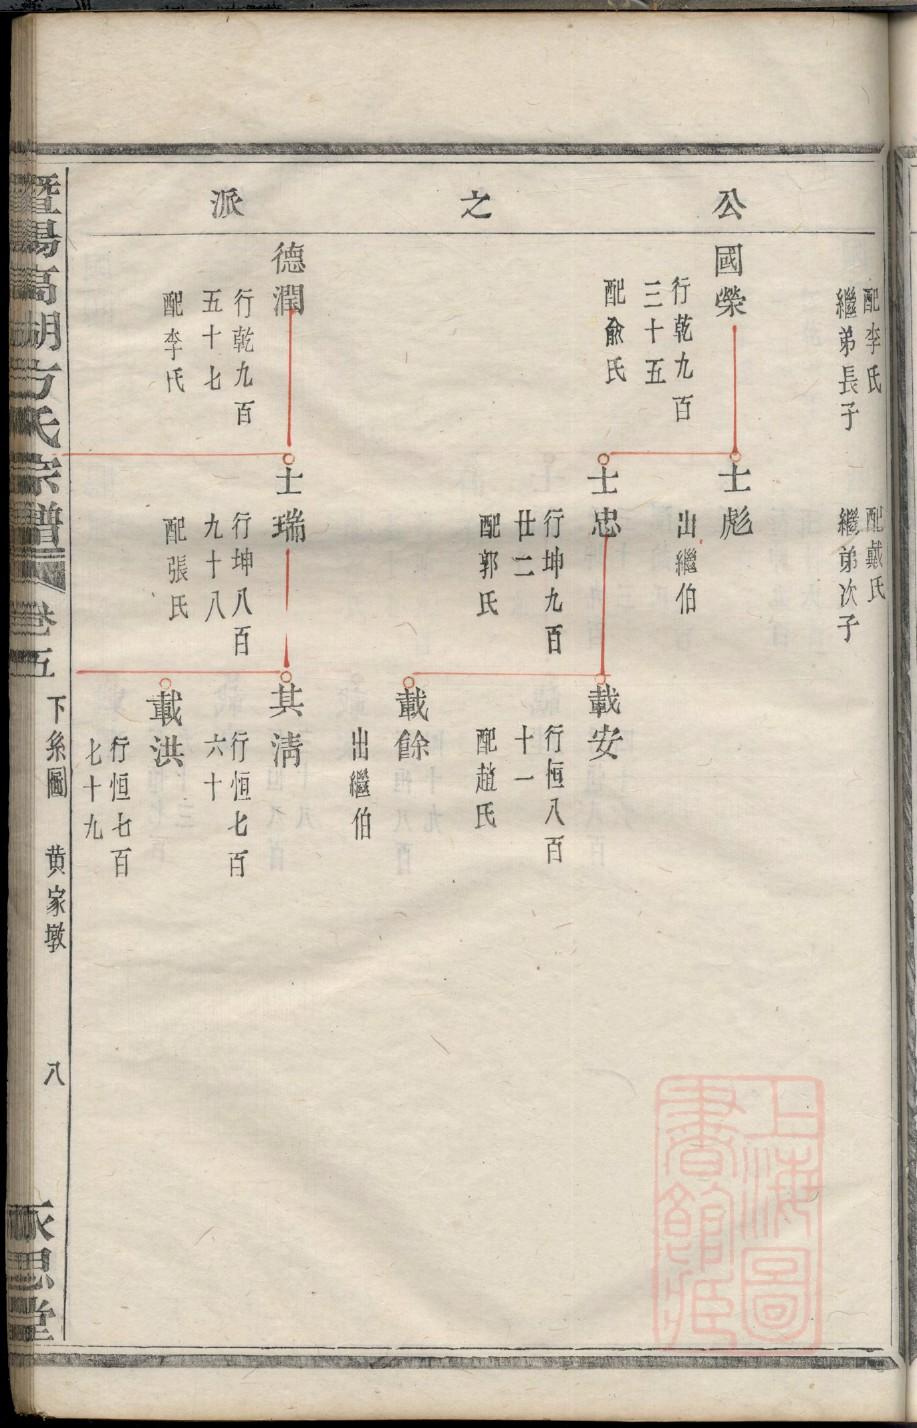 公之派
配李氏
繼弟長子
配戴氏
繼弟次子
國榮
行乾九百
三十五
配兪氏
士彪
出繼伯
士忠
行坤九百
廿二
配郭氏
載安
行恒八百
十一
配趙氏
載餘
出繼伯
德潤
行乾九百
五十七
配李氏
士瑞
行坤八百
九十八
配張氏
其淸
行恒七百
六十
載洪
行恒七百
七十九
暨陽高湖方氏宗譜
卷五
下系圖
黄家墩
八
永思堂
上海圖
書館藏